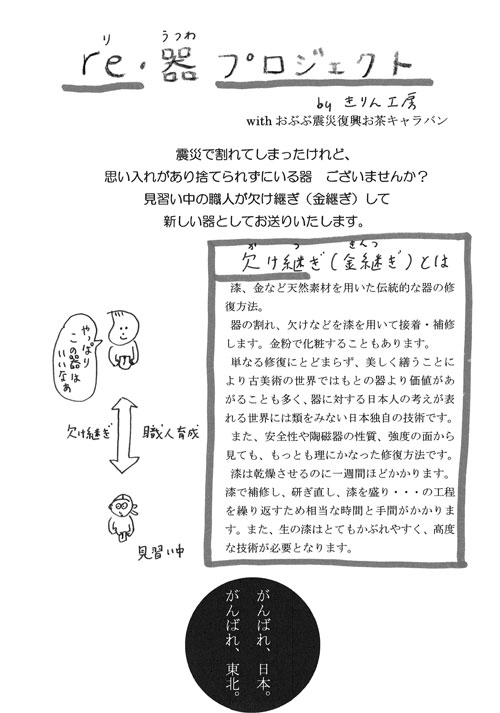 re・器 プロジェクト
り うつわ
by きりん工房
with おぶぶ震災復興お茶キャラバン
震災で割れてしまったけれど、
思い入れがあり捨てられずにいる器　ございませんか？
見習い中の職人が欠け継ぎ（金継ぎ）して
新しい器としてお送りいたします。
か つ きんつ
欠け継ぎ（金継ぎ）とは
漆、金など天然素材を用いた伝統的な器の修
復方法。
器の割れ、欠けなどを漆を用いて接着・補修
します。金粉で化粧することもあります。
単なる修復にとどまらず、美しく繕うことに
より古美術の世界ではもとの器より価値があ
がることも多く、器に対する日本人の考えが表
れる世界には類をみない日本独自の技術です。
また、安全性や陶磁器の性質、強度の面から
見ても、もっとも理にかなった修復方法です。
漆は乾燥させるのに一週間ほどかかります。
漆で補修し、研ぎ直し、漆を盛り・・・の工程
を繰り返すため相当な時間と手間がかかりま
す。また、生の漆はとてもかぶれやすく、高度
な技術が必要となります。
やっぱり
この器は
いいなぁ
欠け継ぎ 職人育成
見習い中
がんばれ、日本。
がんばれ、東北。